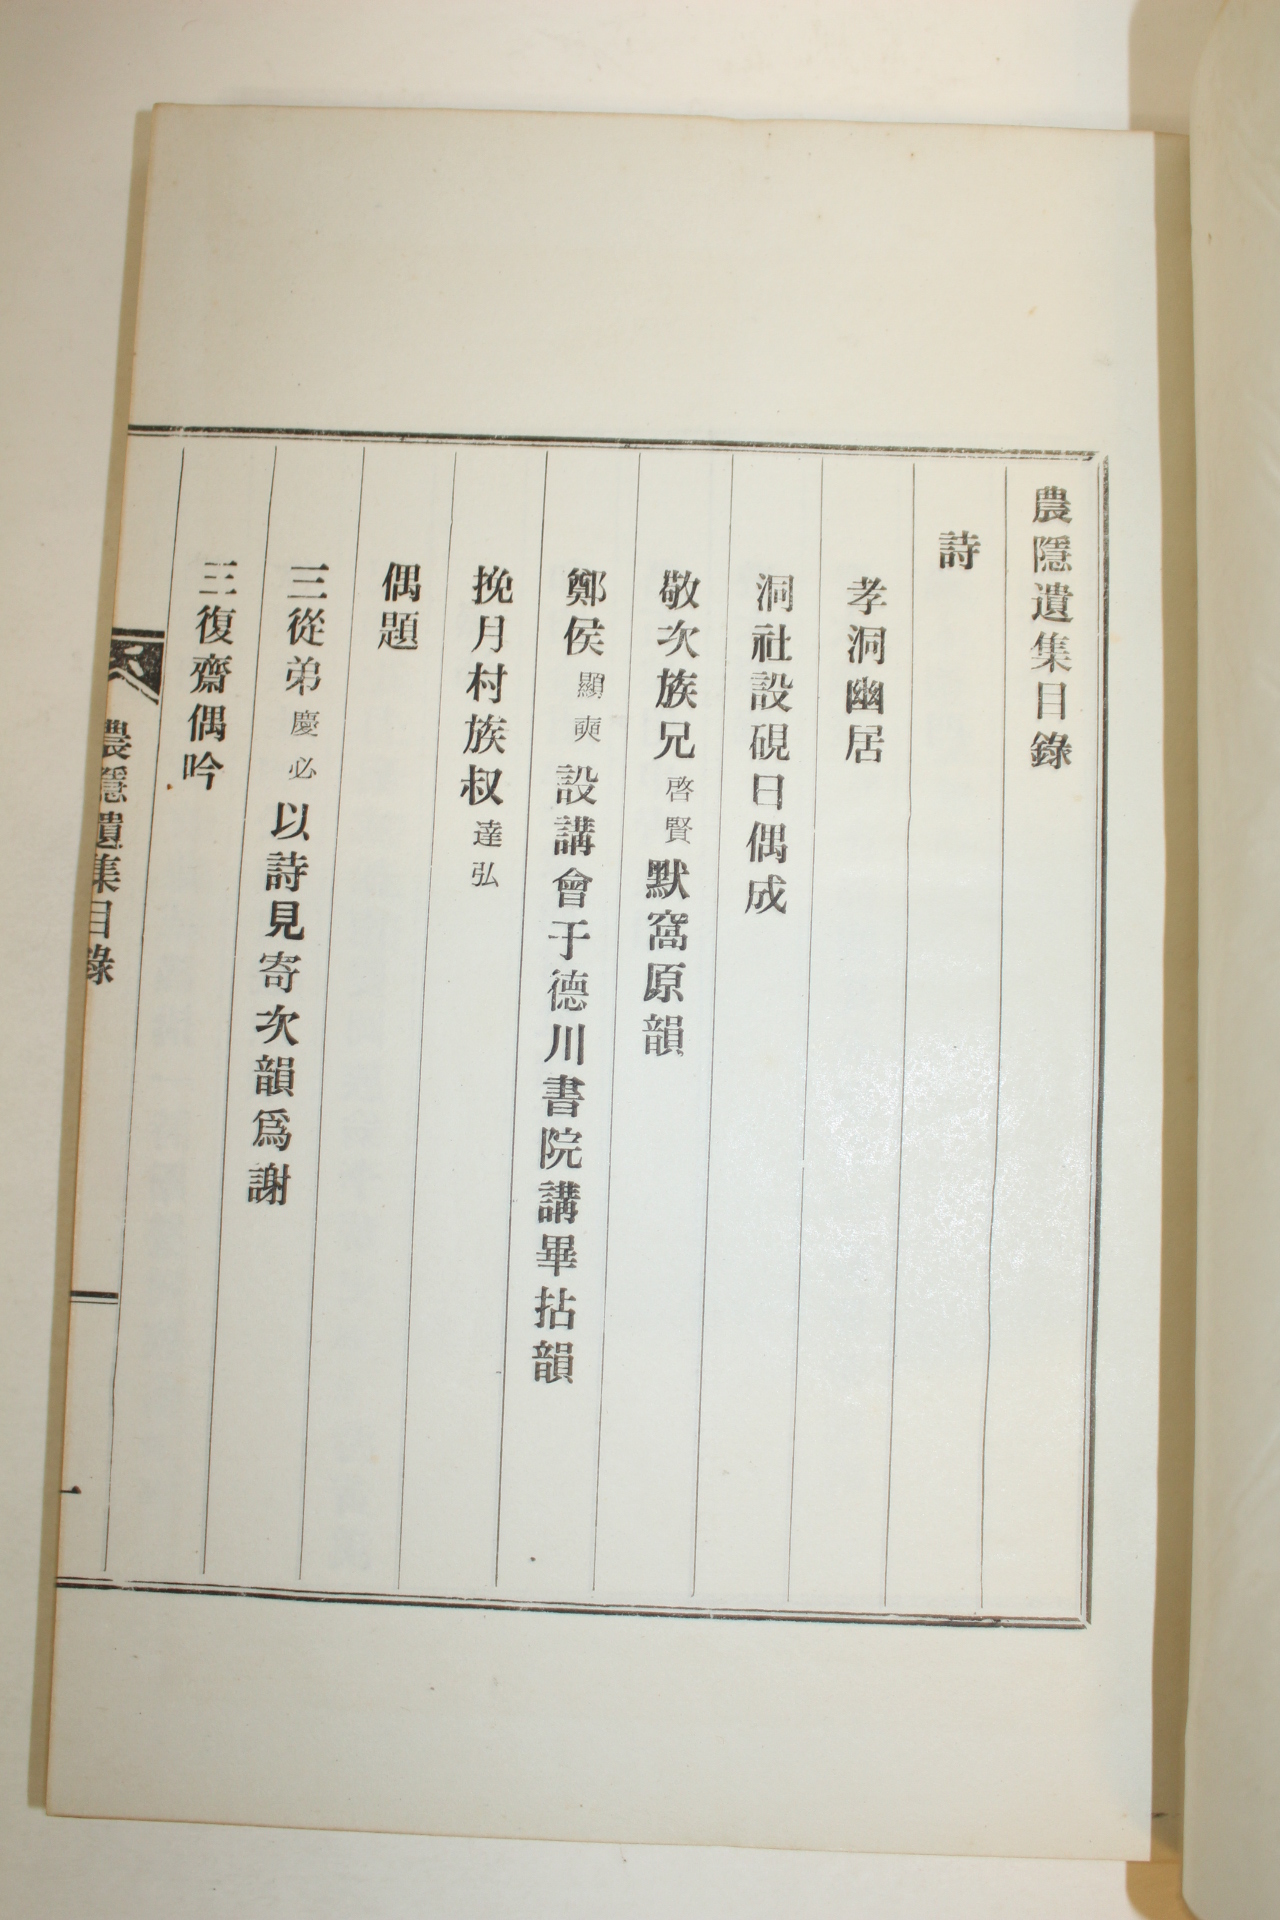 農隱遺集目錄
詩
孝洞幽居
洞社設硯日偶成
敬次族兄啓賢默窩原韻
鄭侯顯奭設講會于德川書院講畢拈韻
挽月村族叔達弘
偶題
三從弟慶必以詩見寄次韻爲謝
三復齋偶吟
農隱遺集目錄
一